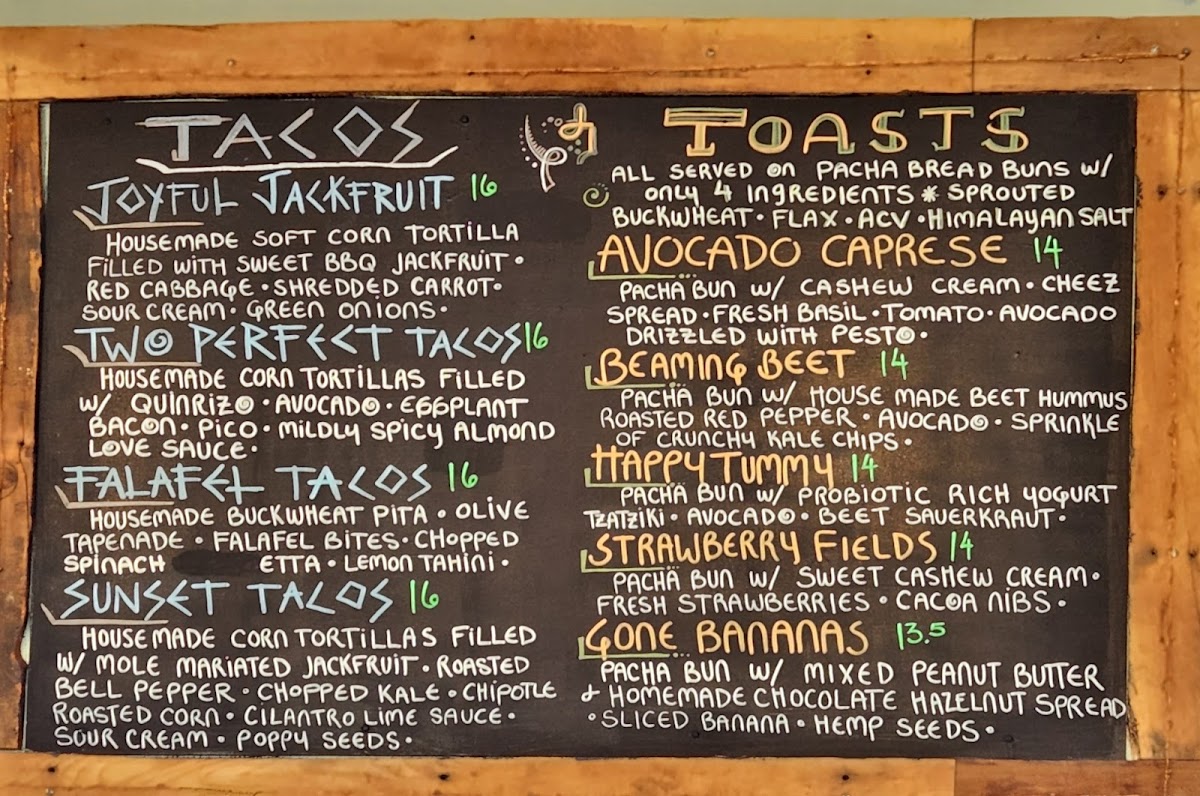 TACOS
JOYFUL JACKFRUIT 16
HOUSEMADE SOFT CORN TORTILLA
FILLED WITH SWEET BBQ JACKFRUIT •
RED CABBAGE • SHREDDED CARROT •
SOUR CREAM • GREEN ONIONS •
TWO PERFECT TACOS 16
HOUSEMADE CORN TORTILLAS FILLED
W/ QUINRIZO • AVOCADO • EGGPLANT
BACON • PICO • MILDLY SPICY ALMOND
LOVE SAUCE •
FALAFEL TACOS 16
HOUSEMADE BUCKWHEAT PITA • OLIVE
TAPENADE • FALAFEL BITES • CHOPPED
SPINACH ETTA • LEMON TAHINI •
SUNSET TACOS 16
HOUSEMADE CORN TORTILLAS FILLED
W/ MOLE MARIATED JACKFRUIT • ROASTED
BELL PEPPER • CHOPPED KALE • CHIPOTLE
ROASTED CORN • CILANTRO LIME SAUCE •
SOUR CREAM • POPPY SEEDS •
&
TOASTS
ALL SERVED ON PACHA BREAD BUNS W/
ONLY 4 INGREDIENTS * SPROUTED
BUCKWHEAT • FLAX • ACV • HIMALAYAN SALT
AVOCADO CAPRESE 14
PACHA BUN W/ CASHEW CREAM • CHEEZ
SPREAD • FRESH BASIL • TOMATO • AVOCADO
DRIZZLED WITH PESTO •
BEAMING BEET 14
PACHA BUN W/ HOUSE MADE BEET HUMMUS
ROASTED RED PEPPER • AVOCADO • SPRINKLE
OF CRUNCHY KALE CHIPS •
HAPPY TUMMY 14
PACHA BUN W/ PROBIOTIC RICH YOGURT
TZATZIKI • AVOCADO • BEET SAUERKRAUT •
STRAWBERRY FIELDS 14
PACHA BUN W/ SWEET CASHEW CREAM •
FRESH STRAWBERRIES • CACOA NIBS •
GONE BANANAS 13.5
PACHA BUN W/ MIXED PEANUT BUTTER
& HOMEMADE CHOCOLATE HAZELNUT SPREAD
• SLICED BANANA • HEMP SEEDS •